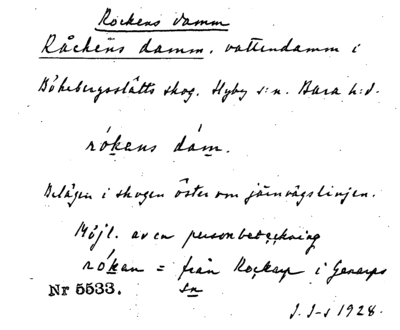 Röckens damm
Råckens damm. vattendamm i
Bökebergsslätts skog. Hyby s:n. Bara h:d.
rókans dám.
Belägen i skogen öster om järnvägslinjen.
Möjl. av en personbeteckning
rókan = från Rockarp i Genarps
Nr 5533. sn
J. I-s 1928.